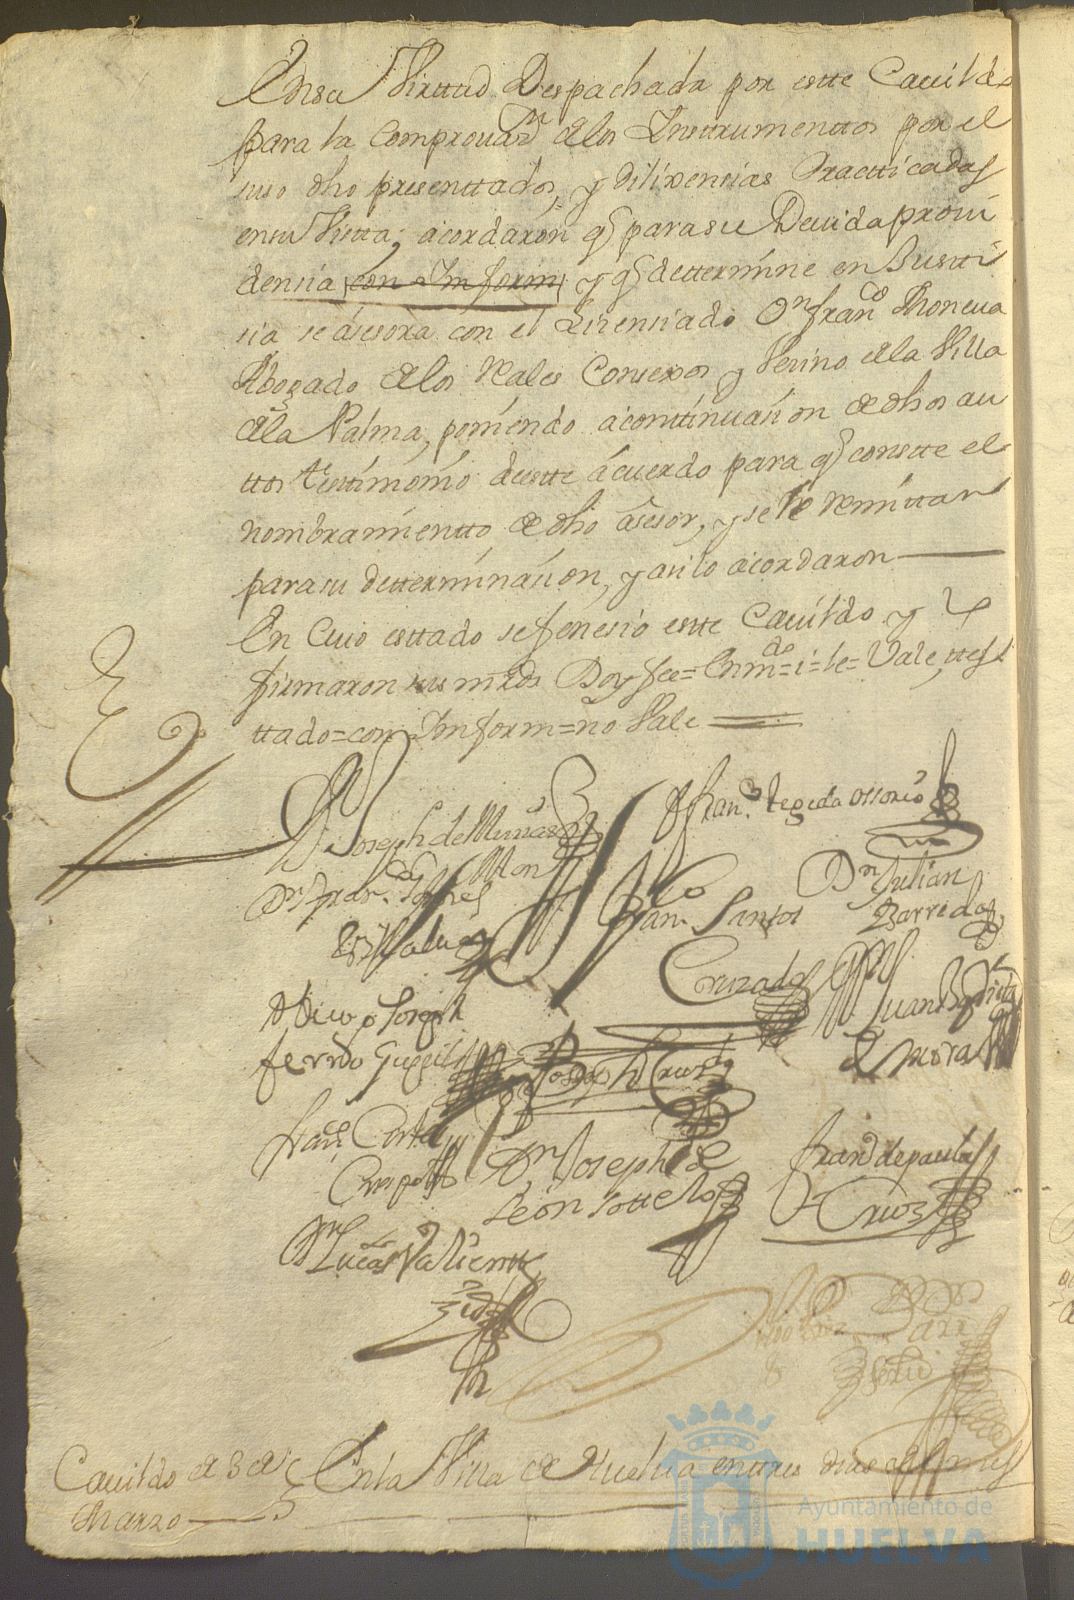 En su Virttud Despachada por estte Cauildo
para la Comprouazn de los Instrumenttos por el
suso dho presenttados, y dilixencias Practticadas
en su Vistta; acordaron q para su Deuida proui
dencia con Inform y q dettermine en Justti
sia se asesora con el Lizensiado Dn Franco Moneua
Abogado de los Reales Consexos y Vesino de la Villa
de la Palma, poniendo a continuasion de dhos au
ttos testimonio de estte acuerdo para q constte el
nombramientto de dho asesor, y se le Remittan
para su detterminasion, y asi lo acordaron
En Cuio esttado se fenesio estte Cauildo y
firmaron sus mrds Doy fee = Enmdo = i = le = Vale, ttesz
ttado = con Inform = no Vale
Dn Joseph de
Franco Tegeda Ossorio
Dn Julian
Barreda
Franco Santos
Cruzado
Diego Joseph
Juan Bapta
de Mora
Joseph Cruz
Franco Corttes
Crespo
Dn Joseph de
León Sottelo
Franco de paula
Cruoz
Dn Lucas Valientte
Cauildo de 3 de
Marzo
En la Villa de Huelua en ttres dias del mes
Ayuntamiento de
HUELVA